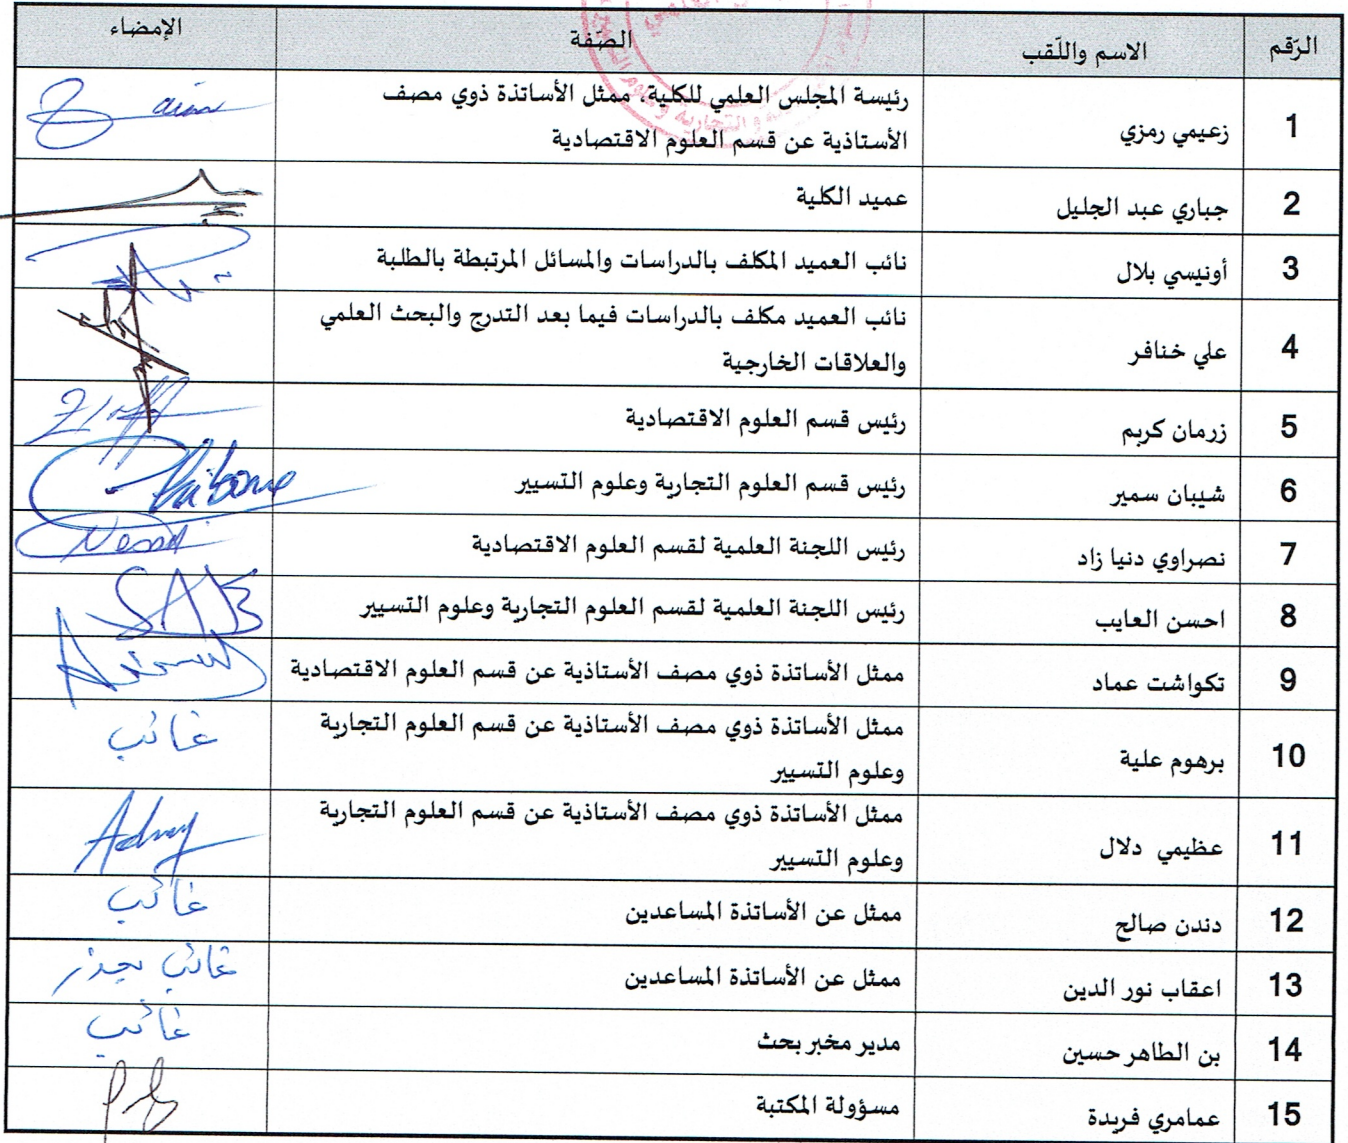 الرّقم الاسم واللّقب الصّفة الإمضاء
1 زعيمي رمزي رئيسة المجلس العلمي للكلية، ممثل الأساتذة ذوي مصف
الأستاذية عن قسم العلوم الاقتصادية
2 جباري عبد الجليل عميد الكلية
3 أونيسي بلال نائب العميد المكلف بالدراسات والمسائل المرتبطة بالطلبة
4 علي خنافر نائب العميد مكلف بالدراسات فيما بعد التدرج والبحث العلمي
والعلاقات الخارجية
5 زرمان كريم رئيس قسم العلوم الاقتصادية
6 شيبان سمير رئيس قسم العلوم التجارية وعلوم التسيير
7 نصراوي دنيا زاد رئيس اللجنة العلمية لقسم العلوم الاقتصادية
8 احسن العايب رئيس اللجنة العلمية لقسم العلوم التجارية وعلوم التسيير
9 تكواشت عماد ممثل الأساتذة ذوي مصف الأستاذية عن قسم العلوم الاقتصادية
10 برهوم علية ممثل الأساتذة ذوي مصف الأستاذية عن قسم العلوم التجارية غائب
وعلوم التسيير
11 عظيمي دلال ممثل الأساتذة ذوي مصف الأستاذية عن قسم العلوم التجارية
وعلوم التسيير
12 دندن صالح ممثل عن الأساتذة المساعدين غائب
13 اعقاب نور الدين ممثل عن الأساتذة المساعدين غائب بعذر
14 بن الطاهر حسين مدير مخبر بحث غائب
15 عمامري فريدة مسؤولة المكتبة